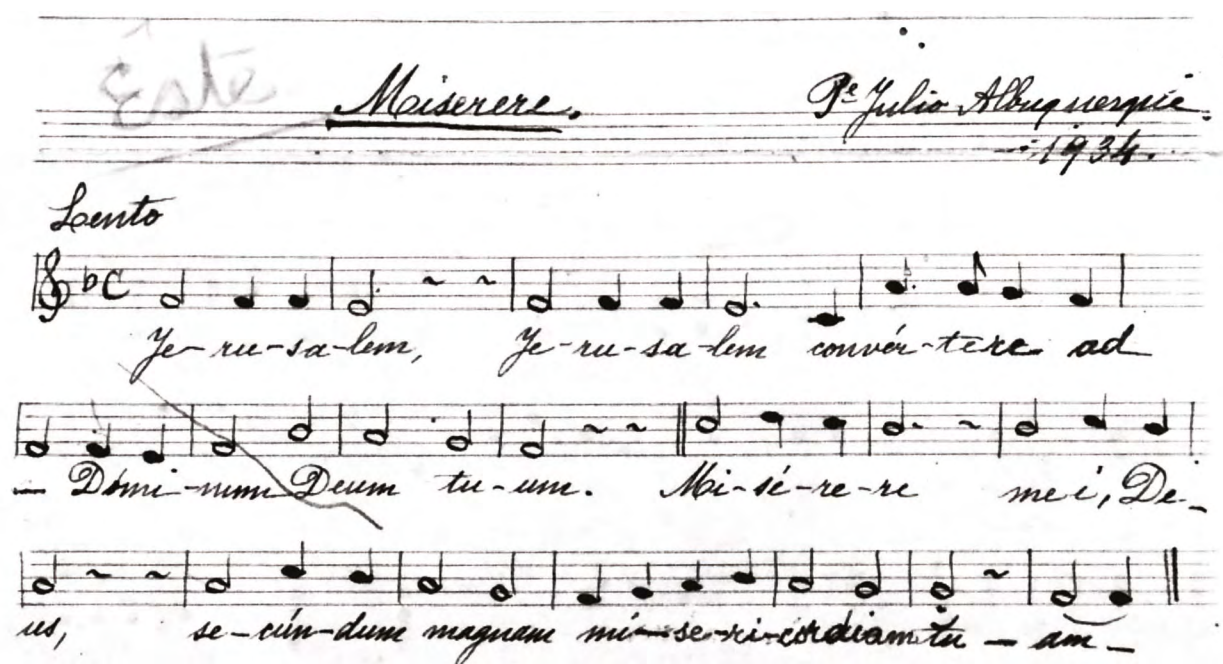 Êste
Miserere.
Pe Julio Albuquerque
1934.
Lento
Je-ru-sa-lem, Je-ru-sa-lem convér-tere ad
- Dómi-num Deum tu-um. Mi-sé-re-re mei, De-
us, se-cún-dum magnam mi-se-ri-cordiam tu-am-